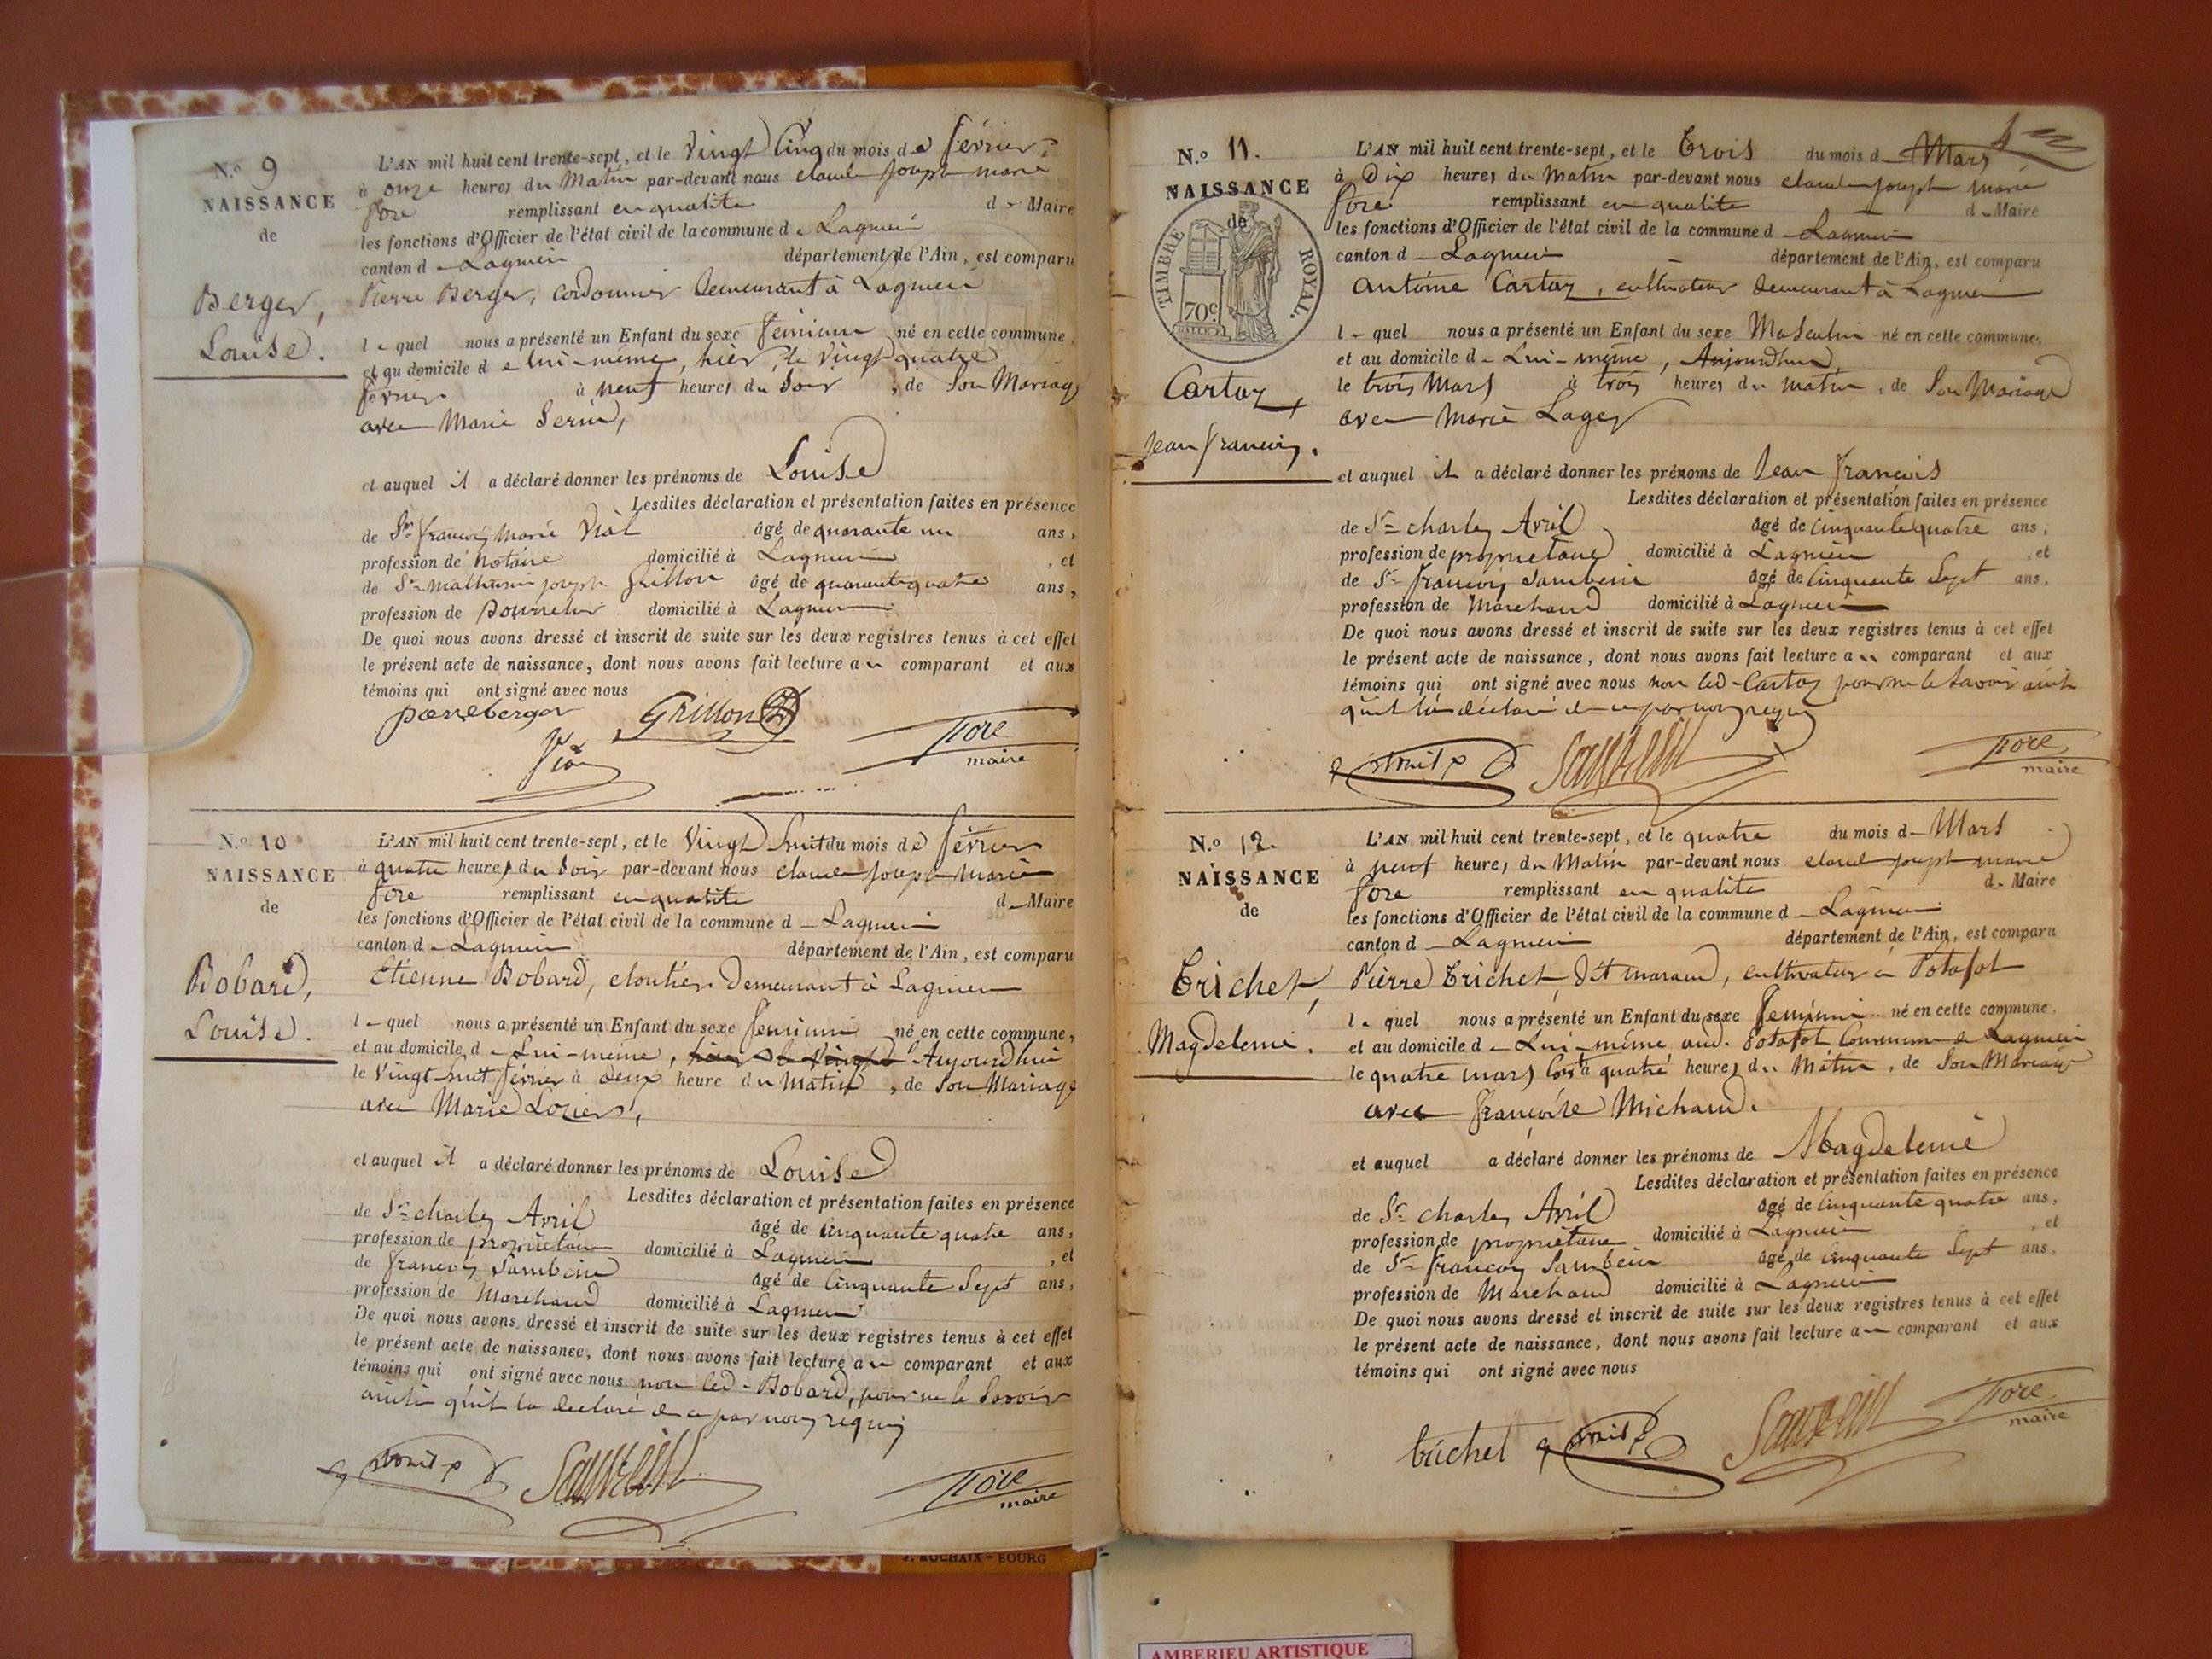 N.o 9
NAISSANCE
de
Berger,
Louise.
L'AN mil huit cent trente-sept, et le Vingt Cinq du mois de février
à onze heures du Matin par-devant nous claude joseph marie
fore remplissant en qualité de Maire
les fonctions d'Officier de l'état civil de la commune de Lagnieu
canton de Lagnieu département de l'Ain, est comparu
Pierre Berger, cordonnier demeurant à Lagnieu
lequel nous a présenté un Enfant du sexe féminin né en cette commune,
et au domicile de lui-même, hier, le vingt quatre
février à neuf heures du Soir, de Son Mariage
avec Marie Serin,
et auquel il a déclaré donner les prénoms de Louise
Lesdites déclaration et présentation faites en présence
de Sr françois Marie Vial âgé de quarante un ans,
profession de Notaire domicilié à Lagnieu, et
de Sr Mathurin joseph Grillon âgé de quarante quatre ans,
profession de Bourrelier domicilié à Lagnieu
De quoi nous avons dressé et inscrit de suite sur les deux registres tenus à cet effet
le présent acte de naissance, dont nous avons fait lecture au comparant et aux
témoins qui ont signé avec nous
pierre berger Grillon fore
maire
N.o 10
NAISSANCE
de
Bobard,
Louise.
L'AN mil huit cent trente-sept, et le Vingt huit du mois de février
à quatre heures du Soir par-devant nous claude joseph Marie
fore remplissant en qualité de Maire
les fonctions d'Officier de l'état civil de la commune de Lagnieu
canton de Lagnieu département de l'Ain, est comparu
Etienne Bobard, cloutier demeurant à Lagnieu
lequel nous a présenté un Enfant du sexe féminin né en cette commune,
et au domicile de Lui-même, Aujourdhui
le Vingt huit février à deux heure du Matin, de Son Mariage
avec Marie Loziers,
et auquel il a déclaré donner les prénoms de Louise
Lesdites déclaration et présentation faites en présence
de Sr charles Avril âgé de cinquante quatre ans,
profession de propriétaire domicilié à Lagnieu, et
de françois Sambein âgé de Cinquante Sept ans,
profession de Marchand domicilié à Lagnieu
De quoi nous avons dressé et inscrit de suite sur les deux registres tenus à cet effet
le présent acte de naissance, dont nous avons fait lecture au comparant et aux
témoins qui ont signé avec nous non led. Bobard, pour ne le Savoir
ainsi qu'il la déclaré de ce par nous requis
fore
maire
N.o 11.
NAISSANCE
de
TIMBRE ROYAL.
70c.
Cartoz,
Jean françois.
L'AN mil huit cent trente-sept, et le trois du mois de Mars
à Dix heures du Matin par-devant nous claude joseph marie
fore remplissant en qualité de Maire
les fonctions d'Officier de l'état civil de la commune de Lagnieu
canton de Lagnieu département de l'Ain, est comparu
antoine Cartoz, cultivateur demeurant à Lagnieu
lequel nous a présenté un Enfant du sexe Masculin né en cette commune,
et au domicile de Lui-même, Aujourdhui
le trois Mars à trois heures du matin, de Son Mariage
avec Marie Lager
et auquel il a déclaré donner les prénoms de Jean françois
Lesdites déclaration et présentation faites en présence
de Sr charles Avril âgé de cinquante quatre ans,
profession de propriétaire domicilié à Lagnieu, et
de Sr françois Sambein âgé de cinquante Sept ans,
profession de Marchand domicilié à Lagnieu
De quoi nous avons dressé et inscrit de suite sur les deux registres tenus à cet effet
le présent acte de naissance, dont nous avons fait lecture au comparant et aux
témoins qui ont signé avec nous non led. Cartoz pour ne le Savoir ainsi
qu'il la déclaré de ce par nous requis
fore
maire
N.o 12.
NAISSANCE
de
Trichet,
Magdeleine.
L'AN mil huit cent trente-sept, et le quatre du mois de Mars
à neuf heures du Matin par-devant nous claude joseph marie
fore remplissant en qualité de Maire
les fonctions d'Officier de l'état civil de la commune de Lagnieu
canton de Lagnieu département de l'Ain, est comparu
Pierre Trichet dit maraud, cultivateur à Potafol
lequel nous a présenté un Enfant du sexe féminin né en cette commune,
et au domicile de Lui-même aud. Potafol Commune de Lagnieu
le quatre mars à quatre heures du Matin, de Son Mariage
avec françoise Michaud.
et auquel a déclaré donner les prénoms de Magdeleine
Lesdites déclaration et présentation faites en présence
de Sr charles Avril âgé de cinquante quatre ans,
profession de propriétaire domicilié à Lagnieu, et
de Sr françois Sambein âgé de cinquante Sept ans,
profession de Marchand domicilié à Lagnieu
De quoi nous avons dressé et inscrit de suite sur les deux registres tenus à cet effet
le présent acte de naissance, dont nous avons fait lecture au comparant et aux
témoins qui ont signé avec nous
trichet fore
maire
J. RUCHAIX - BOURG
AMBERIEU ARTISTIQUE